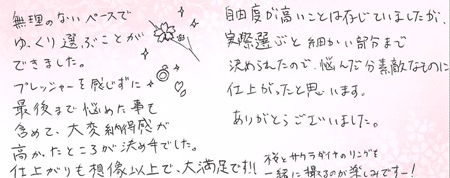 無理のないペースで
ゆっくり選ぶことが
できました。
プレッシャーを感じずに
最後まで悩めた事も
含めて、大変納得感が
高かったところが決め手でした。
仕上がりも想像以上で、大満足です!!
自由度が高いことは存じていましたが、
実際選ぶと細かい部分まで
決められたので、悩んだ分素敵なものに
仕上がったと思います。
ありがとうございました。
桜とサクラダイヤのリングを
一緒に撮るのが楽しみですー!